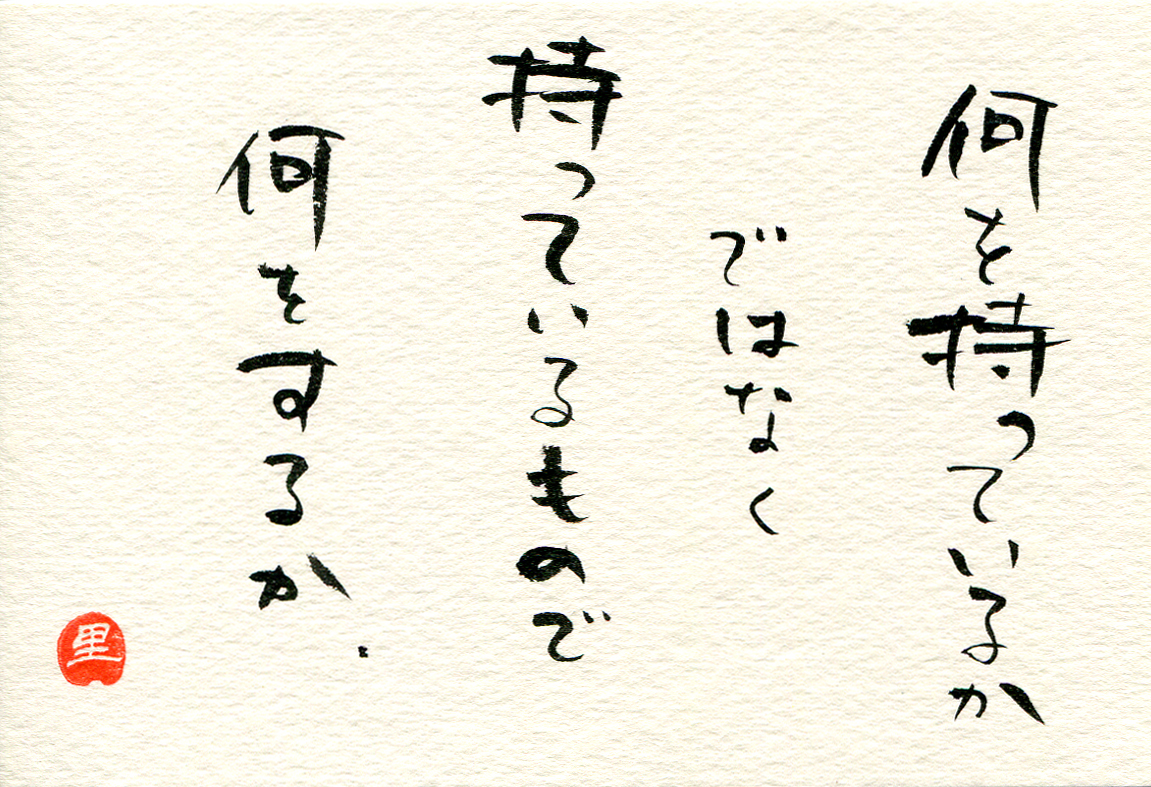 何を持っているか
ではなく
持っているもので
何をするか.
里